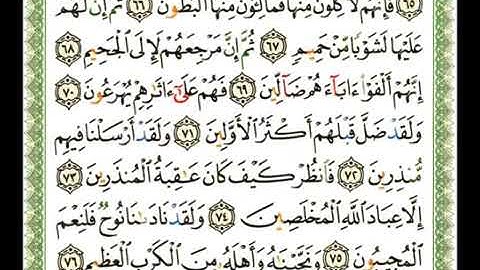 ٦٥ فَإِنَّهُمْ لَآكِلُونَ مِنْهَا فَمَالِـُٔونَ مِنْهَا ٱلْبُطُونَ ٦٦ ثُمَّ إِنَّ لَهُمْ
عَلَيْهَا لَشَوْبًا مِّنْ حَمِيمٍ ٦٧ ثُمَّ إِنَّ مَرْجِعَهُمْ لَإِلَى ٱلْجَحِيمِ ٦٨
إِنَّهُمْ أَلْفَوْا۟ ءَابَآءَهُمْ ضَآلِّينَ ٦٩ فَهُمْ عَلَىٰٓ ءَاثَـٰرِهِمْ يُهْرَعُونَ ٧٠
وَلَقَدْ ضَلَّ قَبْلَهُمْ أَكْثَرُ ٱلْأَوَّلِينَ ٧١ وَلَقَدْ أَرْسَلْنَا فِيهِم
مُّنذِرِينَ ٧٢ فَٱنظُرْ كَيْفَ كَانَ عَـٰقِبَةُ ٱلْمُنذَرِينَ ٧٣
إِلَّا عِبَادَ ٱللَّهِ ٱلْمُخْلَصِينَ ٧٤ وَلَقَدْ نَادَىٰنَا نُوحٌ فَلَنِعْمَ
ٱلْمُجِيبُونَ ٧٥ وَنَجَّيْنَـٰهُ وَأَهْلَهُۥ مِنَ ٱلْكَرْبِ ٱلْعَظِيمِ ٧٦